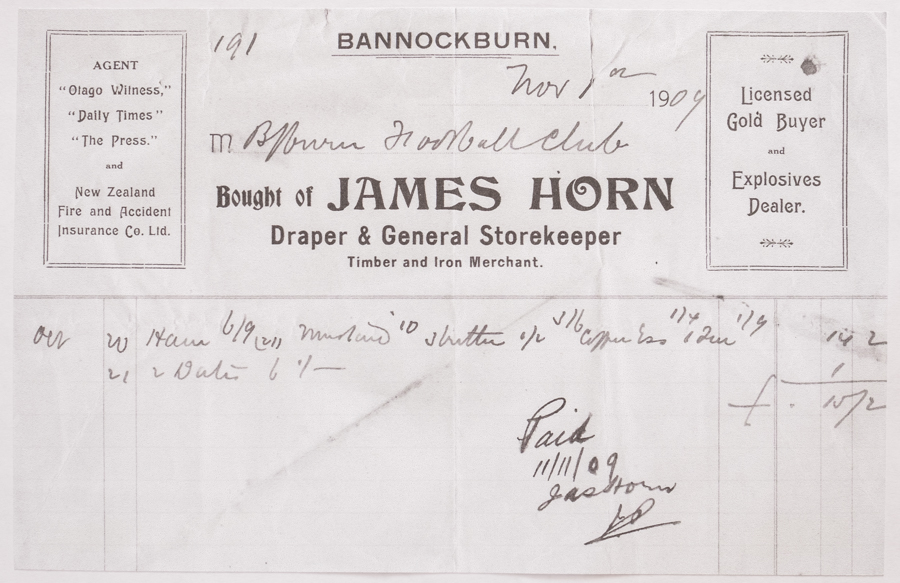 191
BANNOCKBURN.
AGENT
"Otago Witness,"
"Daily Times"
"The Press."
and
New Zealand
Fire and Accident
Insurance Co. Ltd.
Nov 1st 1909
M B/burn Football Club
Bought of JAMES HORN
Draper & General Storekeeper
Timber and Iron Merchant.
Licensed
Gold Buyer
and
Explosives
Dealer.
Oct 20 Ham 6/9 (21) Mustard 10 3 butter 3/6 Coffee Ess 1/4 1/9 14 2
21 2 Dates 6 1/- 1
£ . 15/2
Paid
11/11/09
Jas Horn